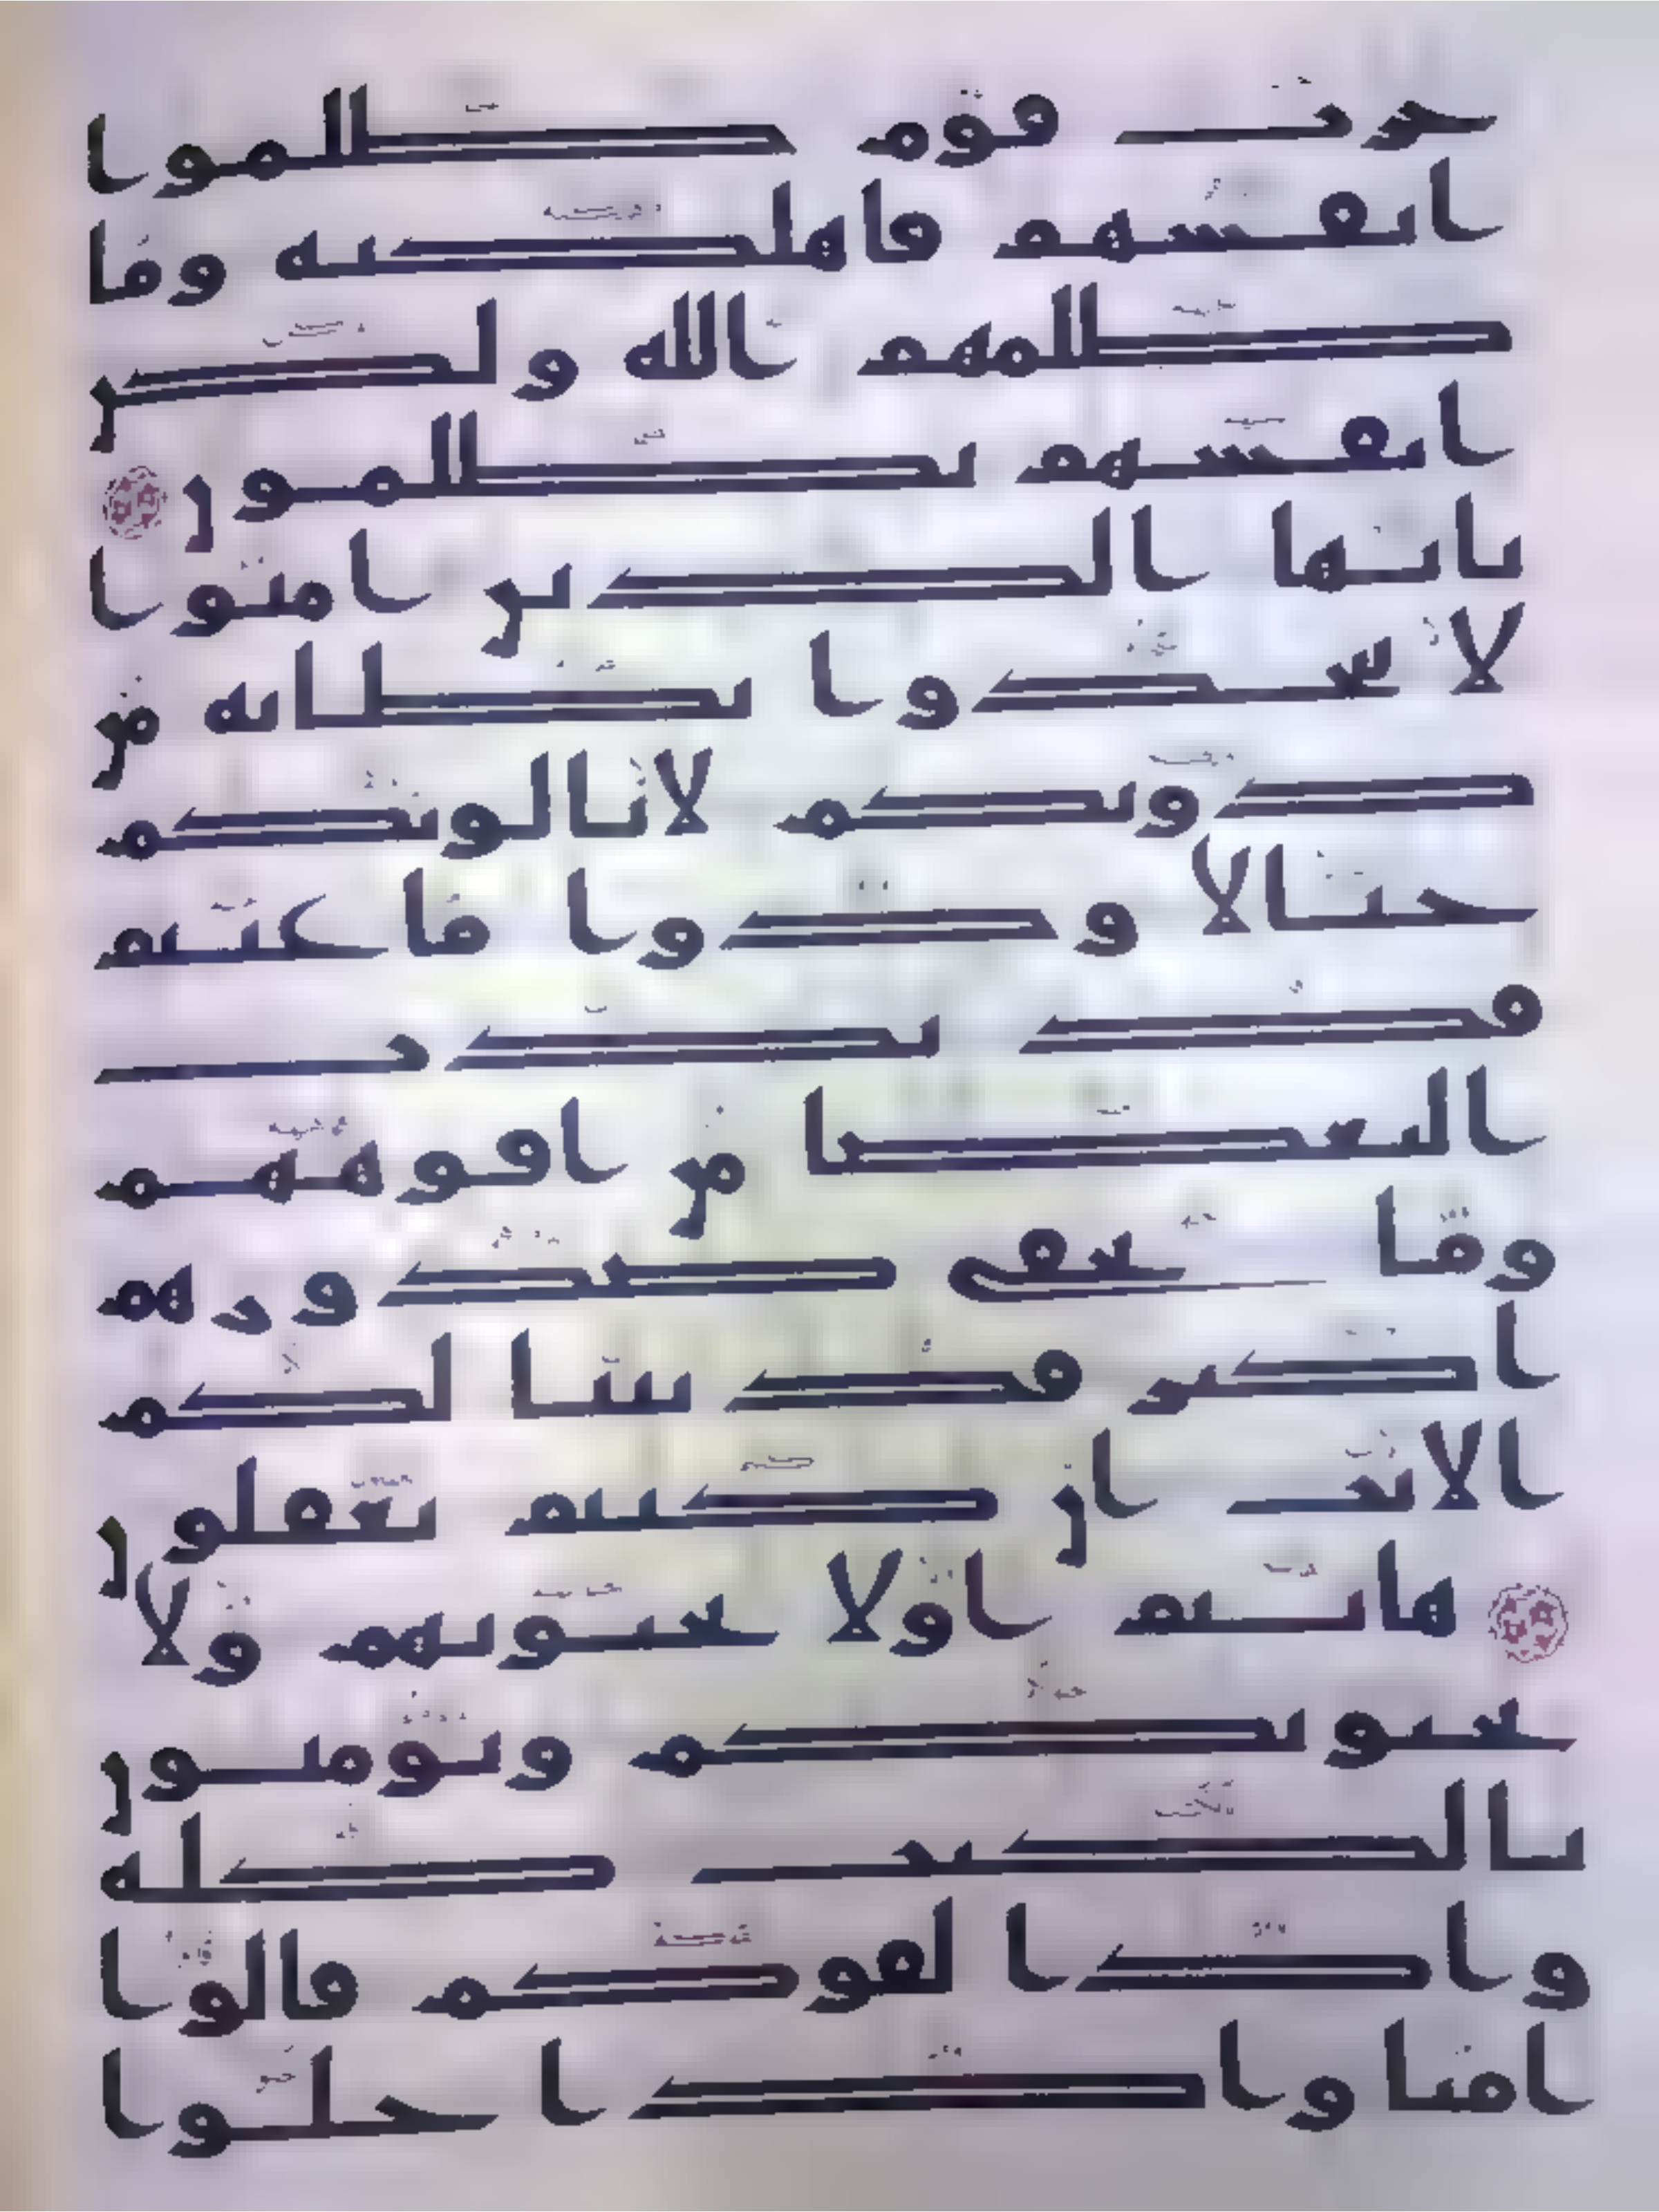 حرث قوم ظلموا
انفسهم فاهلكته وما
ظلمهم الله ولكن
انفسهم يظلمون
يايها الذين امنوا
لا تتخذوا بطانة من
دونكم لا يالونكم
خبالا ودوا ما عنتم
قد بدت
البغضا من افوههم
وما تخفي صدورهم
اكبر قد بينا لكم
الايت ان كنتم تعقلون
هانتم اولا تحبونهم ولا
يحبونكم وتومنون
بالكتب كله
واذا لقوكم قالوا
امنا واذا خلوا